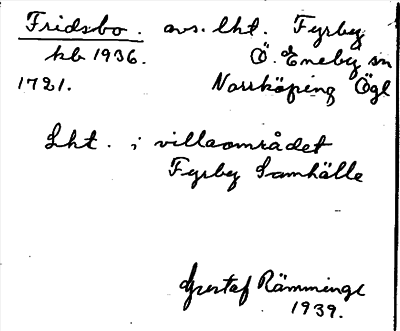 Fridsbo. avs. lht. Fyrby
kb 1936. Ö. Eneby sn
1721. Norrköping Ögl
Lht. i villaområdet
Fyrby Samhälle
Gustaf Rämminge
1939.